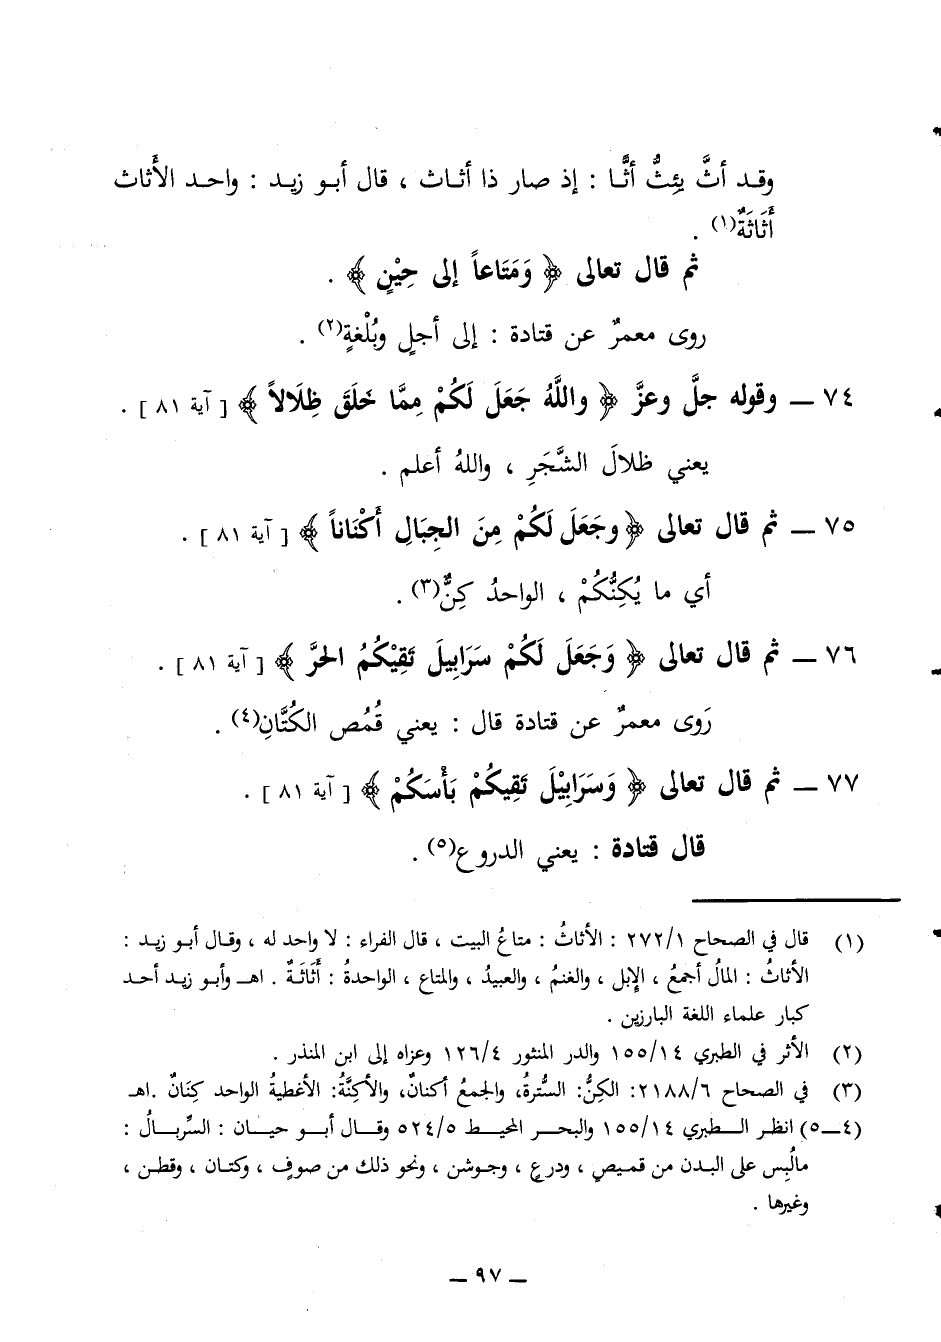 وقـد أثَّ يئِثُّ أثًّـا : إذ صار ذا أثـاث ، قال أبـو زيـد : واحـد الأَثاث
أَثَاثَةٌ(١) .
ثم قال تعالى ﴿ وَمَتَاعاً إلى حِيْنٍ ﴾ .
روى معمرٌ عن قتادة : إلى أجلٍ وبُلْغةٍ(٢) .
٧٤ ــ وقوله جلَّ وعزَّ ﴿ واللَّهُ جَعَلَ لَكُمْ مِمَّا خَلَقَ ظِلَالاً ﴾ [ آية ٨١ ] .
يعني ظلالَ الشَّجَرِ ، واللهُ أعلم .
٧٥ ــ ثم قال تعالى ﴿ وجَعَلَ لَكُمْ مِنَ الجِبَالِ أَكْنَاناً ﴾ [ آية ٨١ ] .
أي ما يُكِنُّكُمْ ، الواحدُ كِنٌّ(٣) .
٧٦ ــ ثم قال تعالى ﴿ وَجَعَلَ لَكُمْ سَرَابِيلَ تَقِيْكُمُ الحَرَّ ﴾ [ آية ٨١ ] .
رَوى معمرٌ عن قتادة قال : يعني قُمُص الكُتَّانِ(٤) .
٧٧ ــ ثم قال تعالى ﴿ وَسَرَابِيْلَ تَقِيكُمْ بَأْسَكُمْ ﴾ [ آية ٨١ ] .
قال قتادة : يعني الدروع(٥) .
(١) قال في الصحاح ٢٧٢/١ : الأثاثُ : متاعُ البيت ، قال الفراء : لا واحد له ، وقـال أبـو زيـد :
الأثاثُ : المالُ أجمعُ ، الإبل ، والغنمُ ، والعبيدُ ، والمتاع ، الواحدةُ : أَثَاثَـةٌ . اهـ وأبـو زيـد أحـد
كبار علماء اللغة البارزين .
(٢) الأثر في الطبري ١٥٥/١٤ والدر المنثور ١٢٦/٤ وعزاه إلى ابن المنذر .
(٣) في الصحاح ٢١٨٨/٦: الكِنُّ: السُّترةُ، والجمعُ أكنانٌ، والأكِنَّةُ: الأغطيةُ الواحد كِنَانٌ .اهـ
(٤ــ٥) انظـر الـطبري ١٥٥/١٤ والبحـر المحيـط ٥٢٤/٥ وقـال أبـو حيـان : السِّربـالُ :
مالُبِس على البـدن من قمـيصٍ ، ودرعٍ ، وجـوشن ، ونحو ذلك من صوفٍ ، وكتـان ، وقطـن ،
وغيرها .
ــ ٩٧ ــ